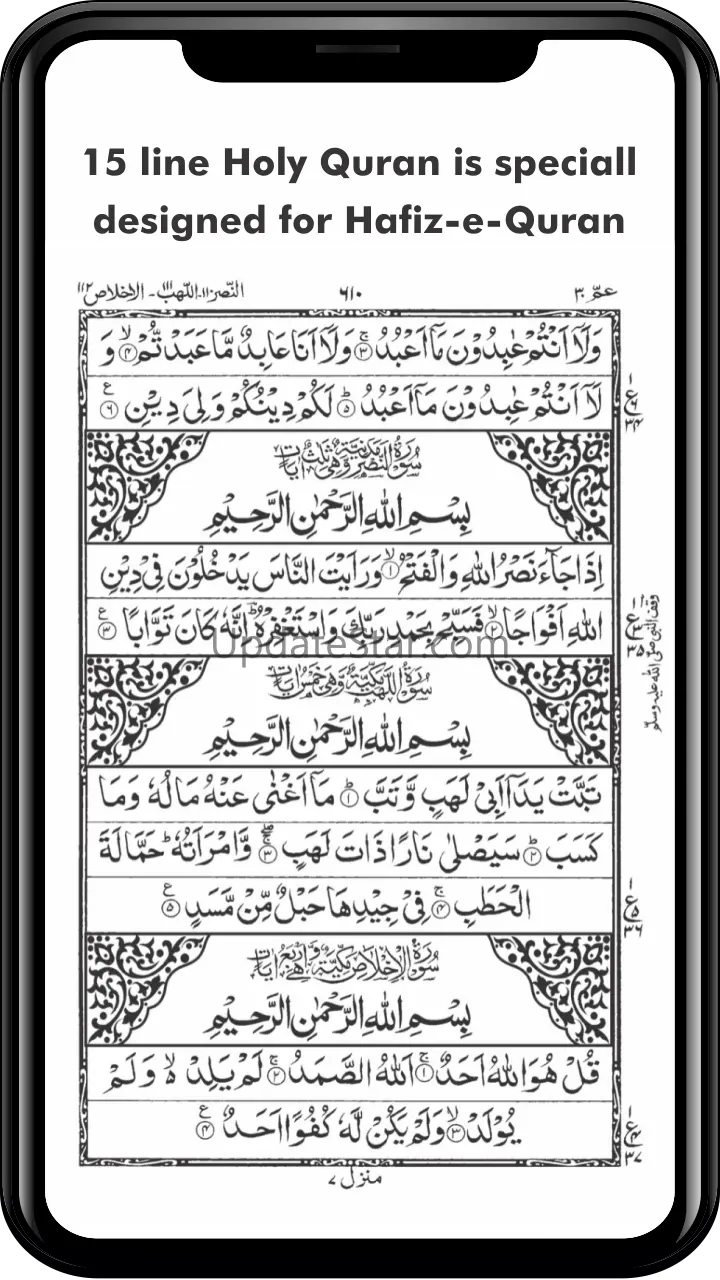 15 line Holy Quran is speciall
designed for Hafiz-e-Quran
عمّ ۳۰ ٦١٠ النّصر١١٠-اللّهب١١١- الاخلاص١١٢
وَلَاۤ اَنْتُمْ عٰبِدُوْنَ مَاۤ اَعْبُدُ ۚ۝٣ وَلَاۤ اَنَا عَابِدٌ مَّا عَبَدْتُّمْ ۙ۝٤ وَ
لَاۤ اَنْتُمْ عٰبِدُوْنَ مَاۤ اَعْبُدُ ؕ۝٥ لَكُمْ دِيْنُكُمْ وَلِىَ دِيْنِ ۝٦
ع
٣٤
سُوْرَةُ النَّصْرِ مَدَنِيَّةٌ وَّهِىَ ثَلٰثُ اٰيَاتٍ
بِسْمِ اللّٰهِ الرَّحْمٰنِ الرَّحِيْمِ
اِذَا جَآءَ نَصْرُ اللّٰهِ وَالْفَتْحُ ۙ۝١ وَرَاَيْتَ النَّاسَ يَدْخُلُوْنَ فِىْ دِيْنِ
اللّٰهِ اَفْوَاجًا ۙ۝٢ فَسَبِّحْ بِحَمْدِ رَبِّكَ وَاسْتَغْفِرْهُ ؕ اِنَّهٗ كَانَ تَوَّابًا ۝٣
ع
٣٥
وقف النبى صلى الله عليه وسلم
UpdateStar.com
سُوْرَةُ اللَّهَبِ مَكِّيَّةٌ وَّهِىَ خَمْسُ اٰيَاتٍ
بِسْمِ اللّٰهِ الرَّحْمٰنِ الرَّحِيْمِ
تَبَّتْ يَدَاۤ اَبِىْ لَهَبٍ وَّتَبَّ ؕ۝١ مَاۤ اَغْنٰى عَنْهُ مَالُهٗ وَمَا
كَسَبَ ؕ۝٢ سَيَصْلٰى نَارًا ذَاتَ لَهَبٍ ۝٣ وَّامْرَاَتُهٗ ؕ حَمَّالَةَ
الْحَطَبِ ۚ۝٤ فِىْ جِيْدِهَا حَبْلٌ مِّنْ مَّسَدٍ ۝٥
ع
٣٦
سُوْرَةُ الْاِخْلَاصِ مَكِّيَّةٌ وَّهِىَ اَرْبَعُ اٰيَاتٍ
بِسْمِ اللّٰهِ الرَّحْمٰنِ الرَّحِيْمِ
قُلْ هُوَ اللّٰهُ اَحَدٌ ۚ۝١ اَللّٰهُ الصَّمَدُ ۚ۝٢ لَمْ يَلِدْ ۙ وَلَمْ
يُوْلَدْ ۙ۝٣ وَلَمْ يَكُنْ لَّهٗ كُفُوًا اَحَدٌ ۝٤
ع
٣٧
منزل ٧